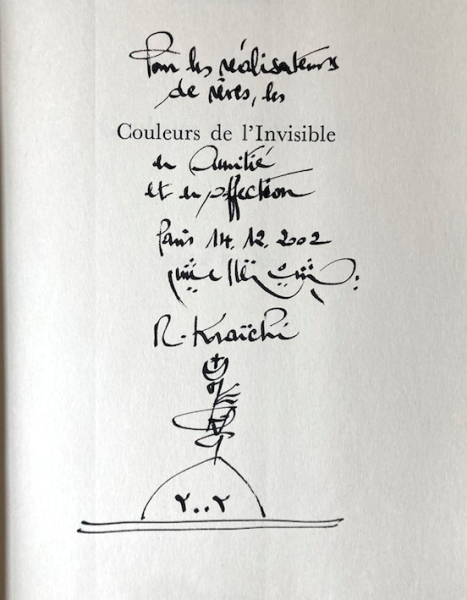 Pour les réalisateurs
de rêves, les
Couleurs de l'Invisible
en Amitié
et en affection
Paris 14.12.2002
R. Koraïchi
٢٠٠٢